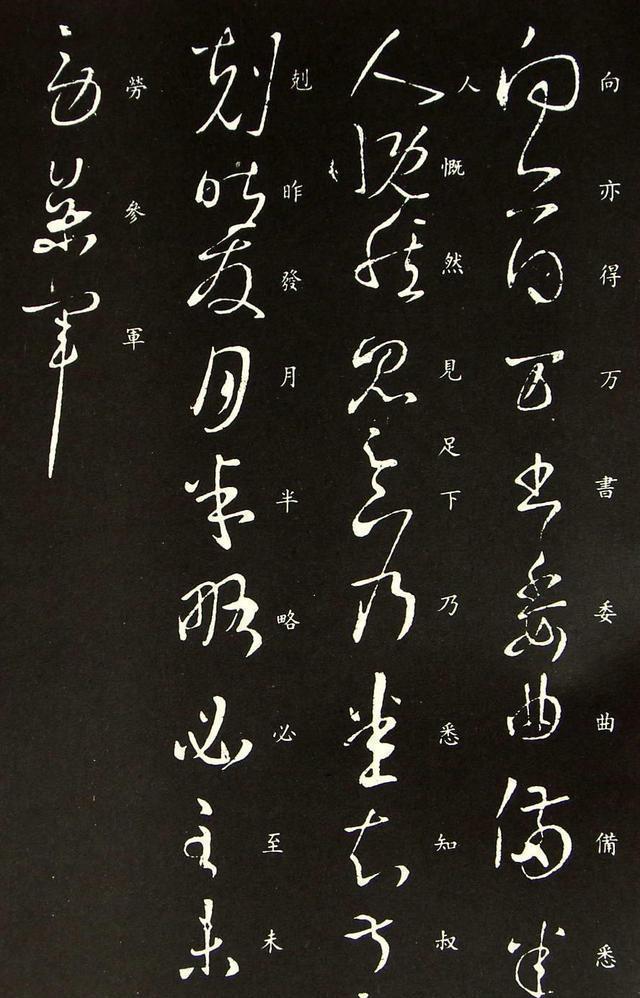 向亦得万書委曲備悉
人慨然見足下乃悉知叔
剋昨發月半略必至未
勞參軍